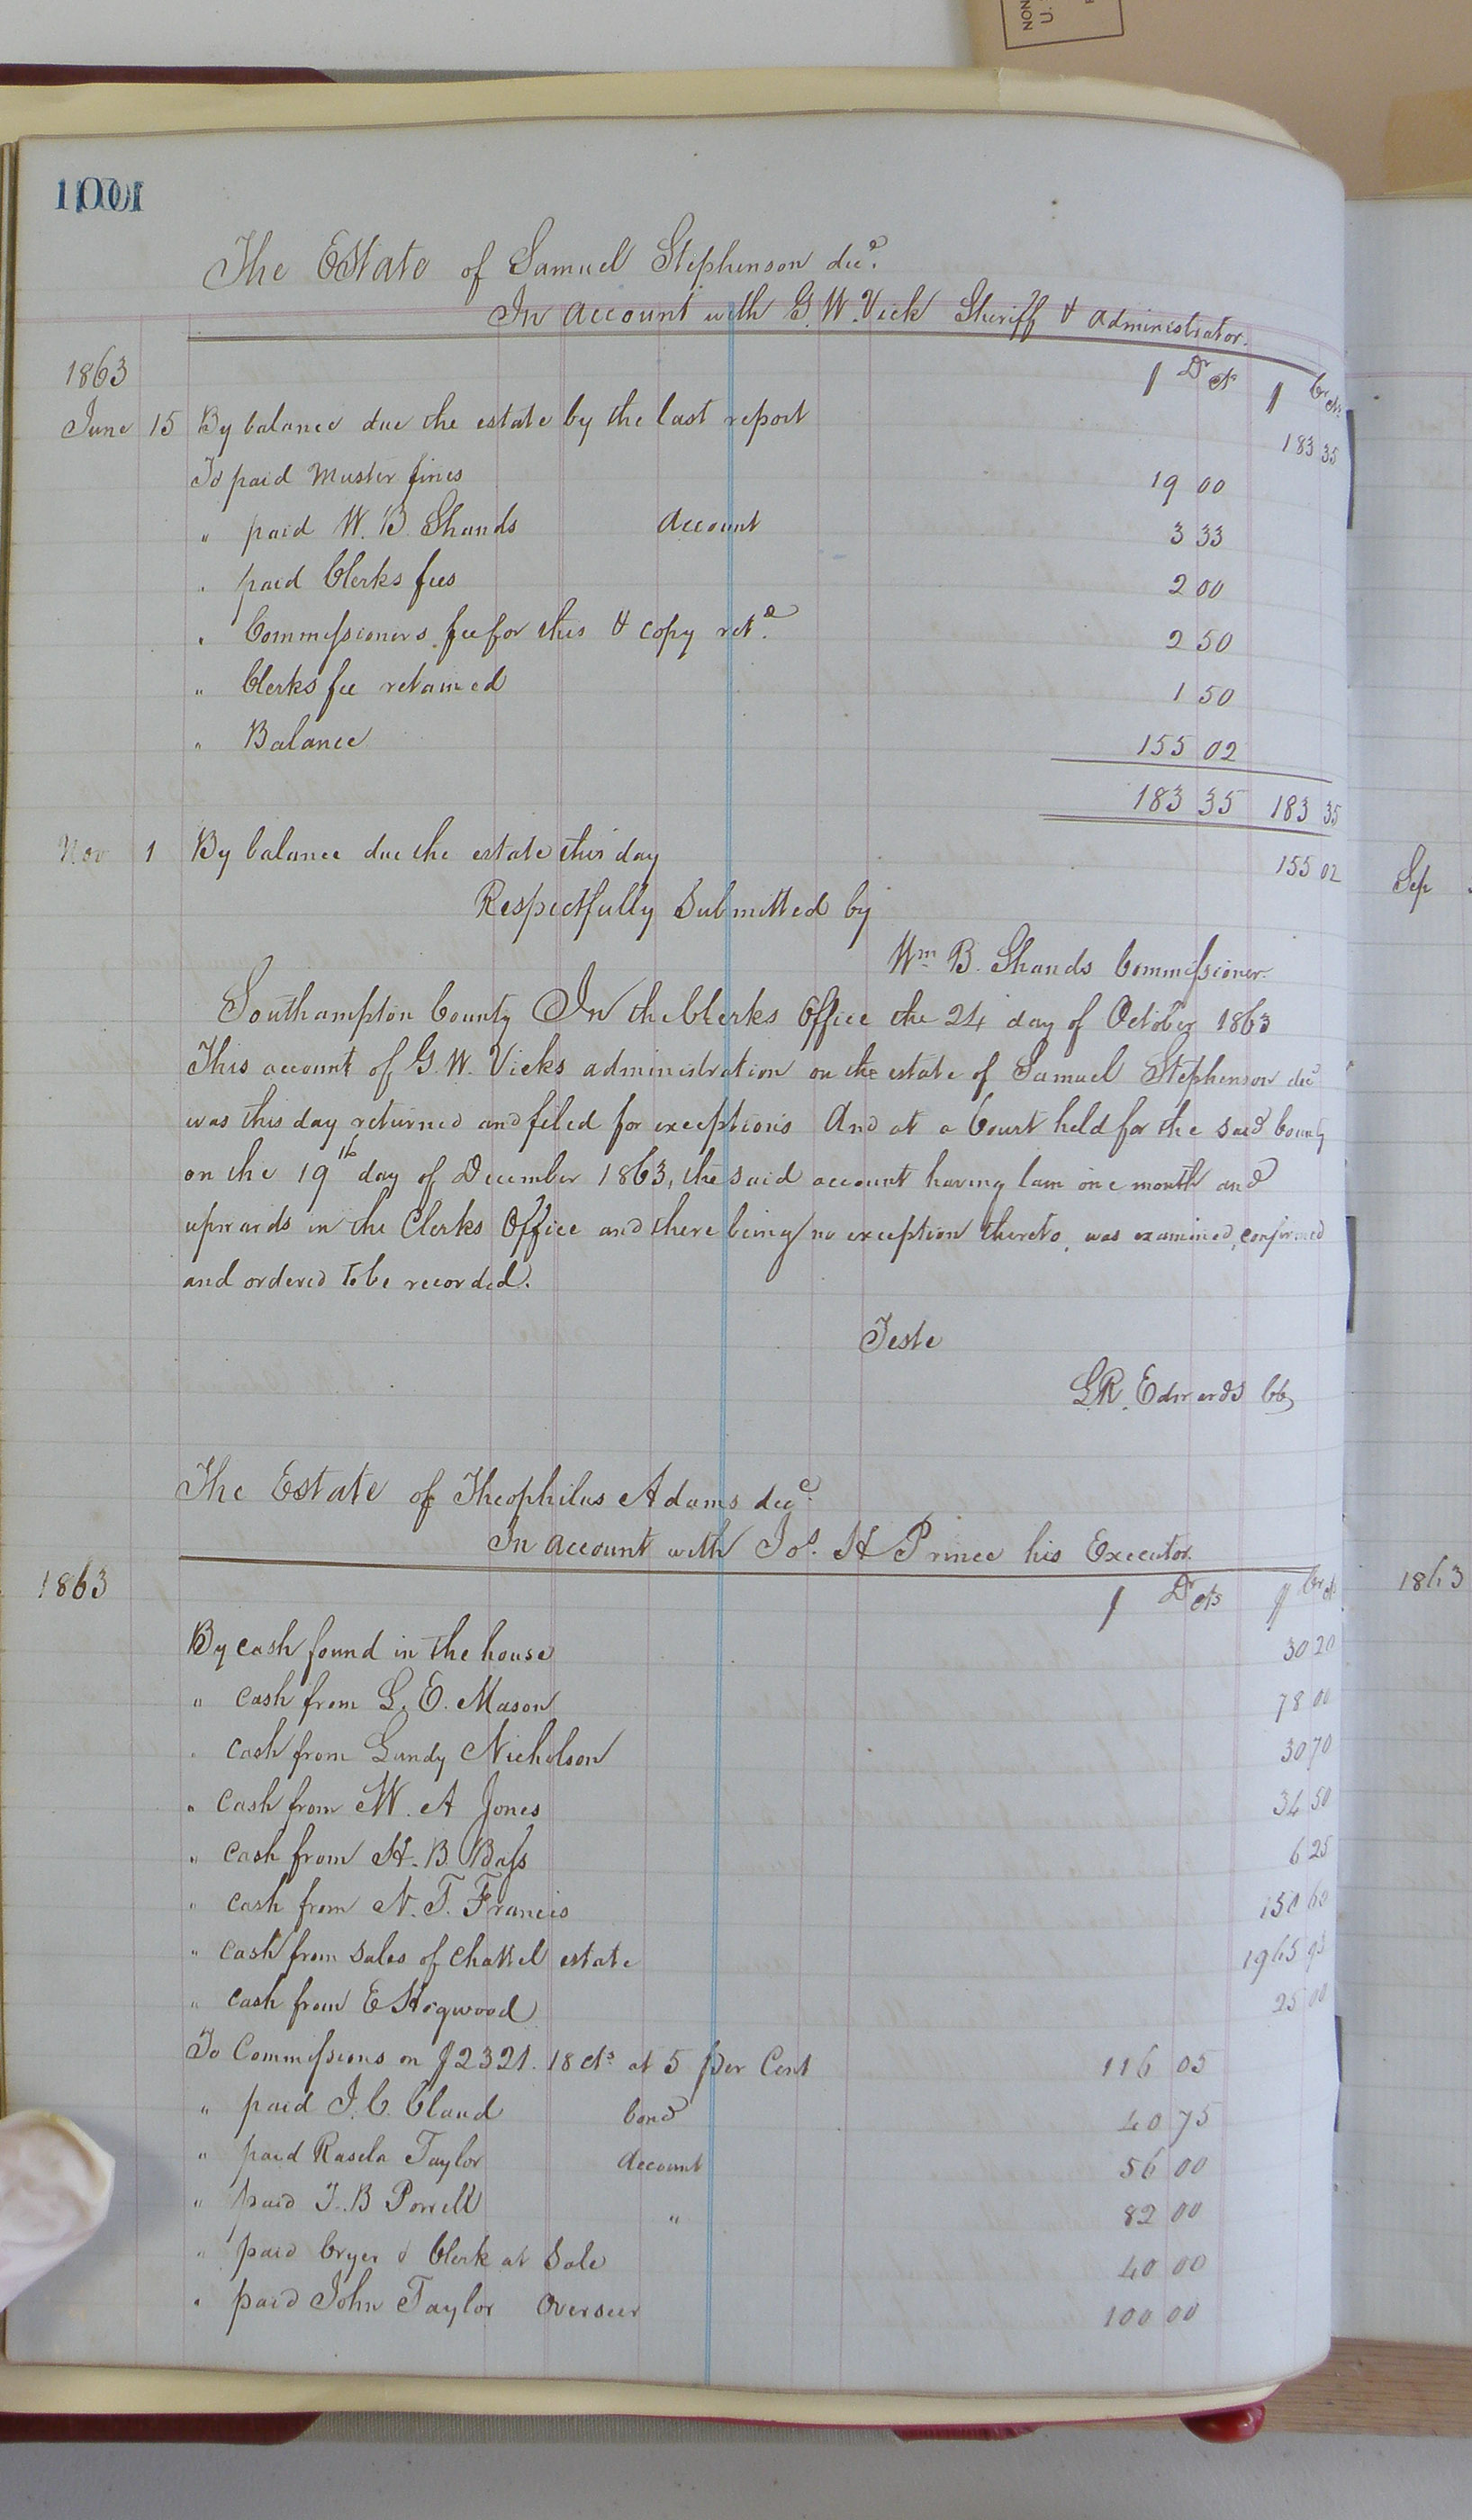 NON
U.
The Estate of Samuel Stephenson decd.
In account with G. W. Vick Sheriff & administrator.
1863 $ Dr cts $ Cr cts
June 15 By balance due the estate by the last report 183 35
To paid Muster fines 19 00
" paid W. B. Shands account 3 33
" paid Clerks fees 2 00
" Commissioners fee for this & copy retd. 2 50
" Clerks fee retained 1 50
" Balance 155 02
183 35 183 35
Nov 1 By balance due the estate this day 155 02
Respectfully Submitted by
Wm B. Shands Commissioner
Southampton County In the Clerks Office the 24 day of October 1863
This account of G. W. Vicks administration on the estate of Samuel Stephenson decd
was this day returned and filed for exceptions And at a Court held for the said County
on the 19th day of December 1863, the said account having lain one month and
upwards in the Clerks Office and there being no exception thereto, was examined, confirmed
and ordered to be recorded.
Teste
L.R. Edwards CC
The Estate of Theophilus Adams decd.
In account with Jos. H Prince his Executor.
1863 $ Dr cts $ Cr cts
By cash found in the house 30 20
" cash from L. E. Mason 78 00
" cash from Lundy Nicholson 30 70
" cash from W. A Jones 34 50
" cash from H. B. Bass 6 25
" cash from N. T. Francis 150 60
" cash from sales of chattel estate 1965 93
" cash from E Hogwood 25 00
To Commissions on $2321. 18 cts at 5 per Cent 116 05
" paid J. C. Claud bond 40 75
" paid Taylor account 56 00
" paid J. B Powell " 82 00
" paid Cryer & Clerk at Sale 40 00
" paid John Taylor Overseer 100 00
Sep
1863